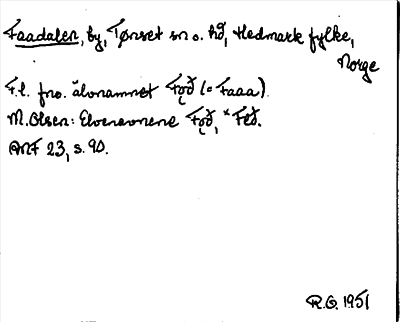 Faadalen, by, Tønset sn o. hd, Hedmark fylke,
Norge
F.l. fno. älvnamnet Fǫð (= Faaa).
M. Olsen: Elvenavnene Fǫð, *Feð.
ANF 23, s. 90.
R.O. 1951